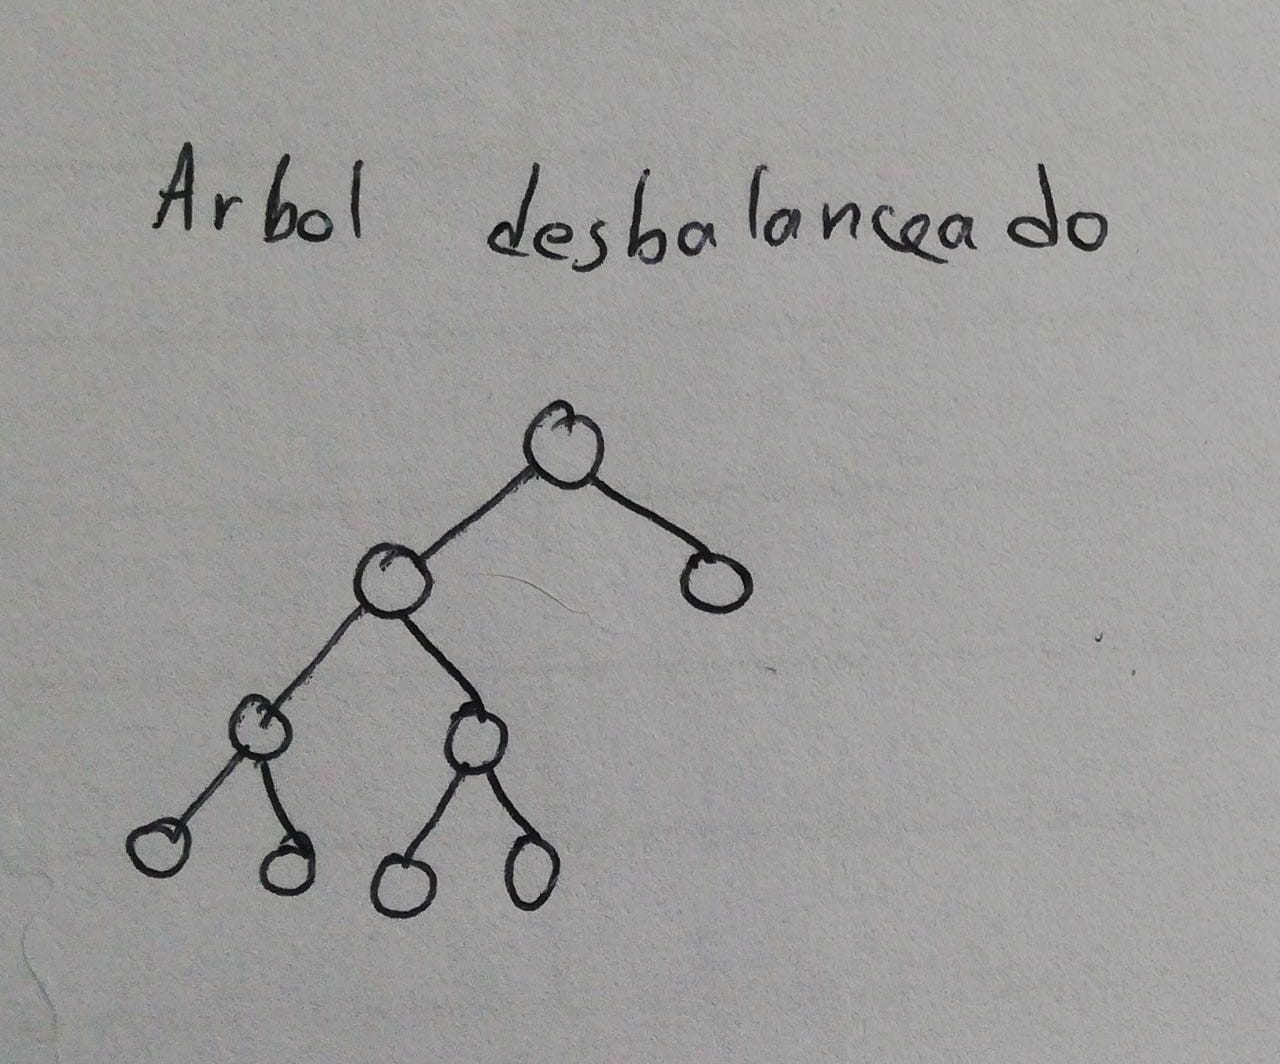 Arbol desbalanceado